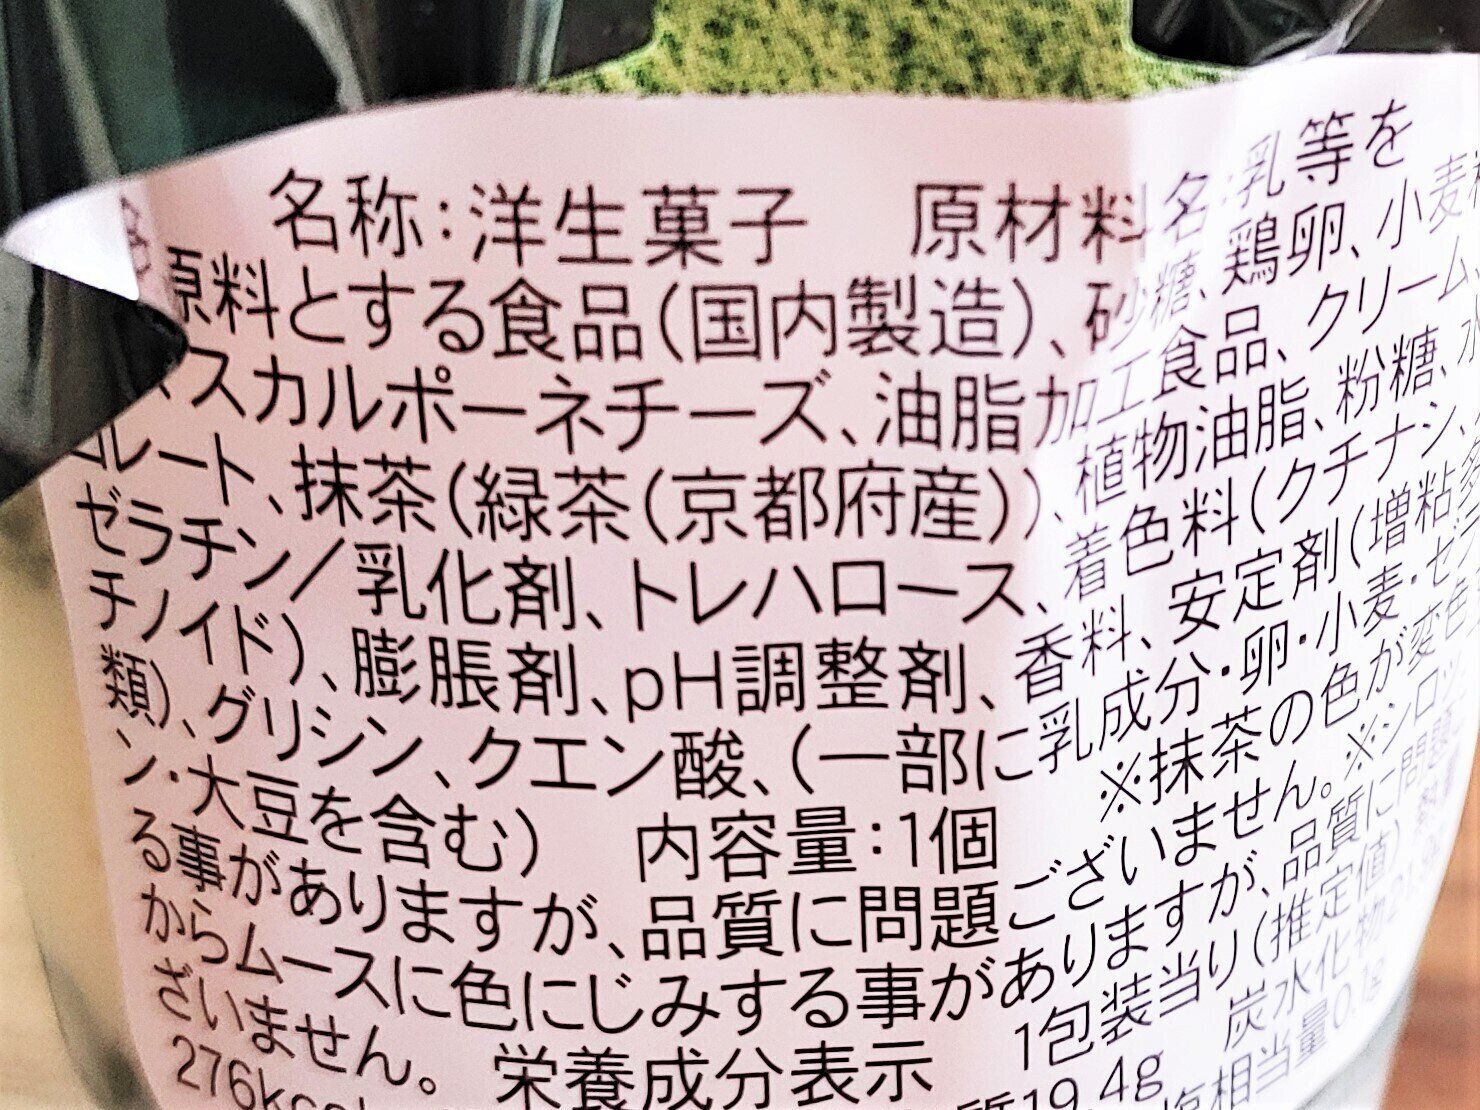 名称：洋生菓子　原材料名：乳等を
原料とする食品（国内製造）、砂糖、鶏卵、小麦
スカルポーネチーズ、油脂加工食品、クリーム
レート、抹茶（緑茶（京都府産））、植物油脂、粉糖、水
ゼラチン／乳化剤、トレハロース、着色料（クチナシ、
チノイド）、膨脹剤、pH調整剤、香料、安定剤（増粘多
類）、グリシン、クエン酸、（一部に乳成分・卵・小麦・ゼラ
ン・大豆を含む）　内容量：1個　※抹茶の色が変色
る事がありますが、品質に問題ございません。※シロッ
からムースに色にじみする事がありますが、品質に問題
ざいません。　栄養成分表示　1包装当り（推定値）
276kcal 質19.4g 炭水化物21.9g
相当量0.1g